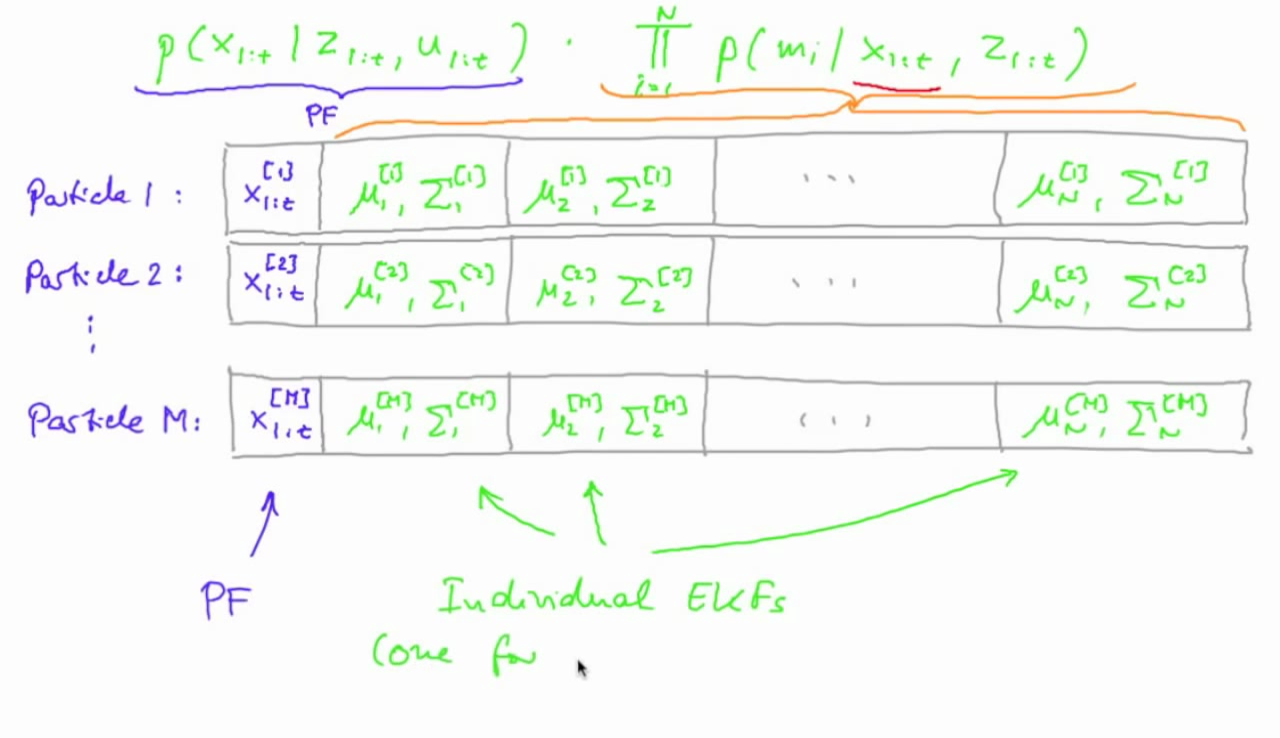 p(x₁:t | z₁:t, u₁:t) · ∏ᵢ₌₁ᴺ p(mᵢ | x₁:t, z₁:t)
PF
Particle 1 : x₁:t^[1] μ₁^[1], Σ₁^[1] μ₂^[1], Σ₂^[1] ... μ_N^[1], Σ_N^[1]
Particle 2 : x₁:t^[2] μ₁^[2], Σ₁^[2] μ₂^[2], Σ₂^[2] ... μ_N^[2], Σ_N^[2]
⋮
Particle M: x₁:t^[M] μ₁^[M], Σ₁^[M] μ₂^[M], Σ₂^[M] ... μ_N^[M], Σ_N^[M]
PF
Individual EKFs
(one for